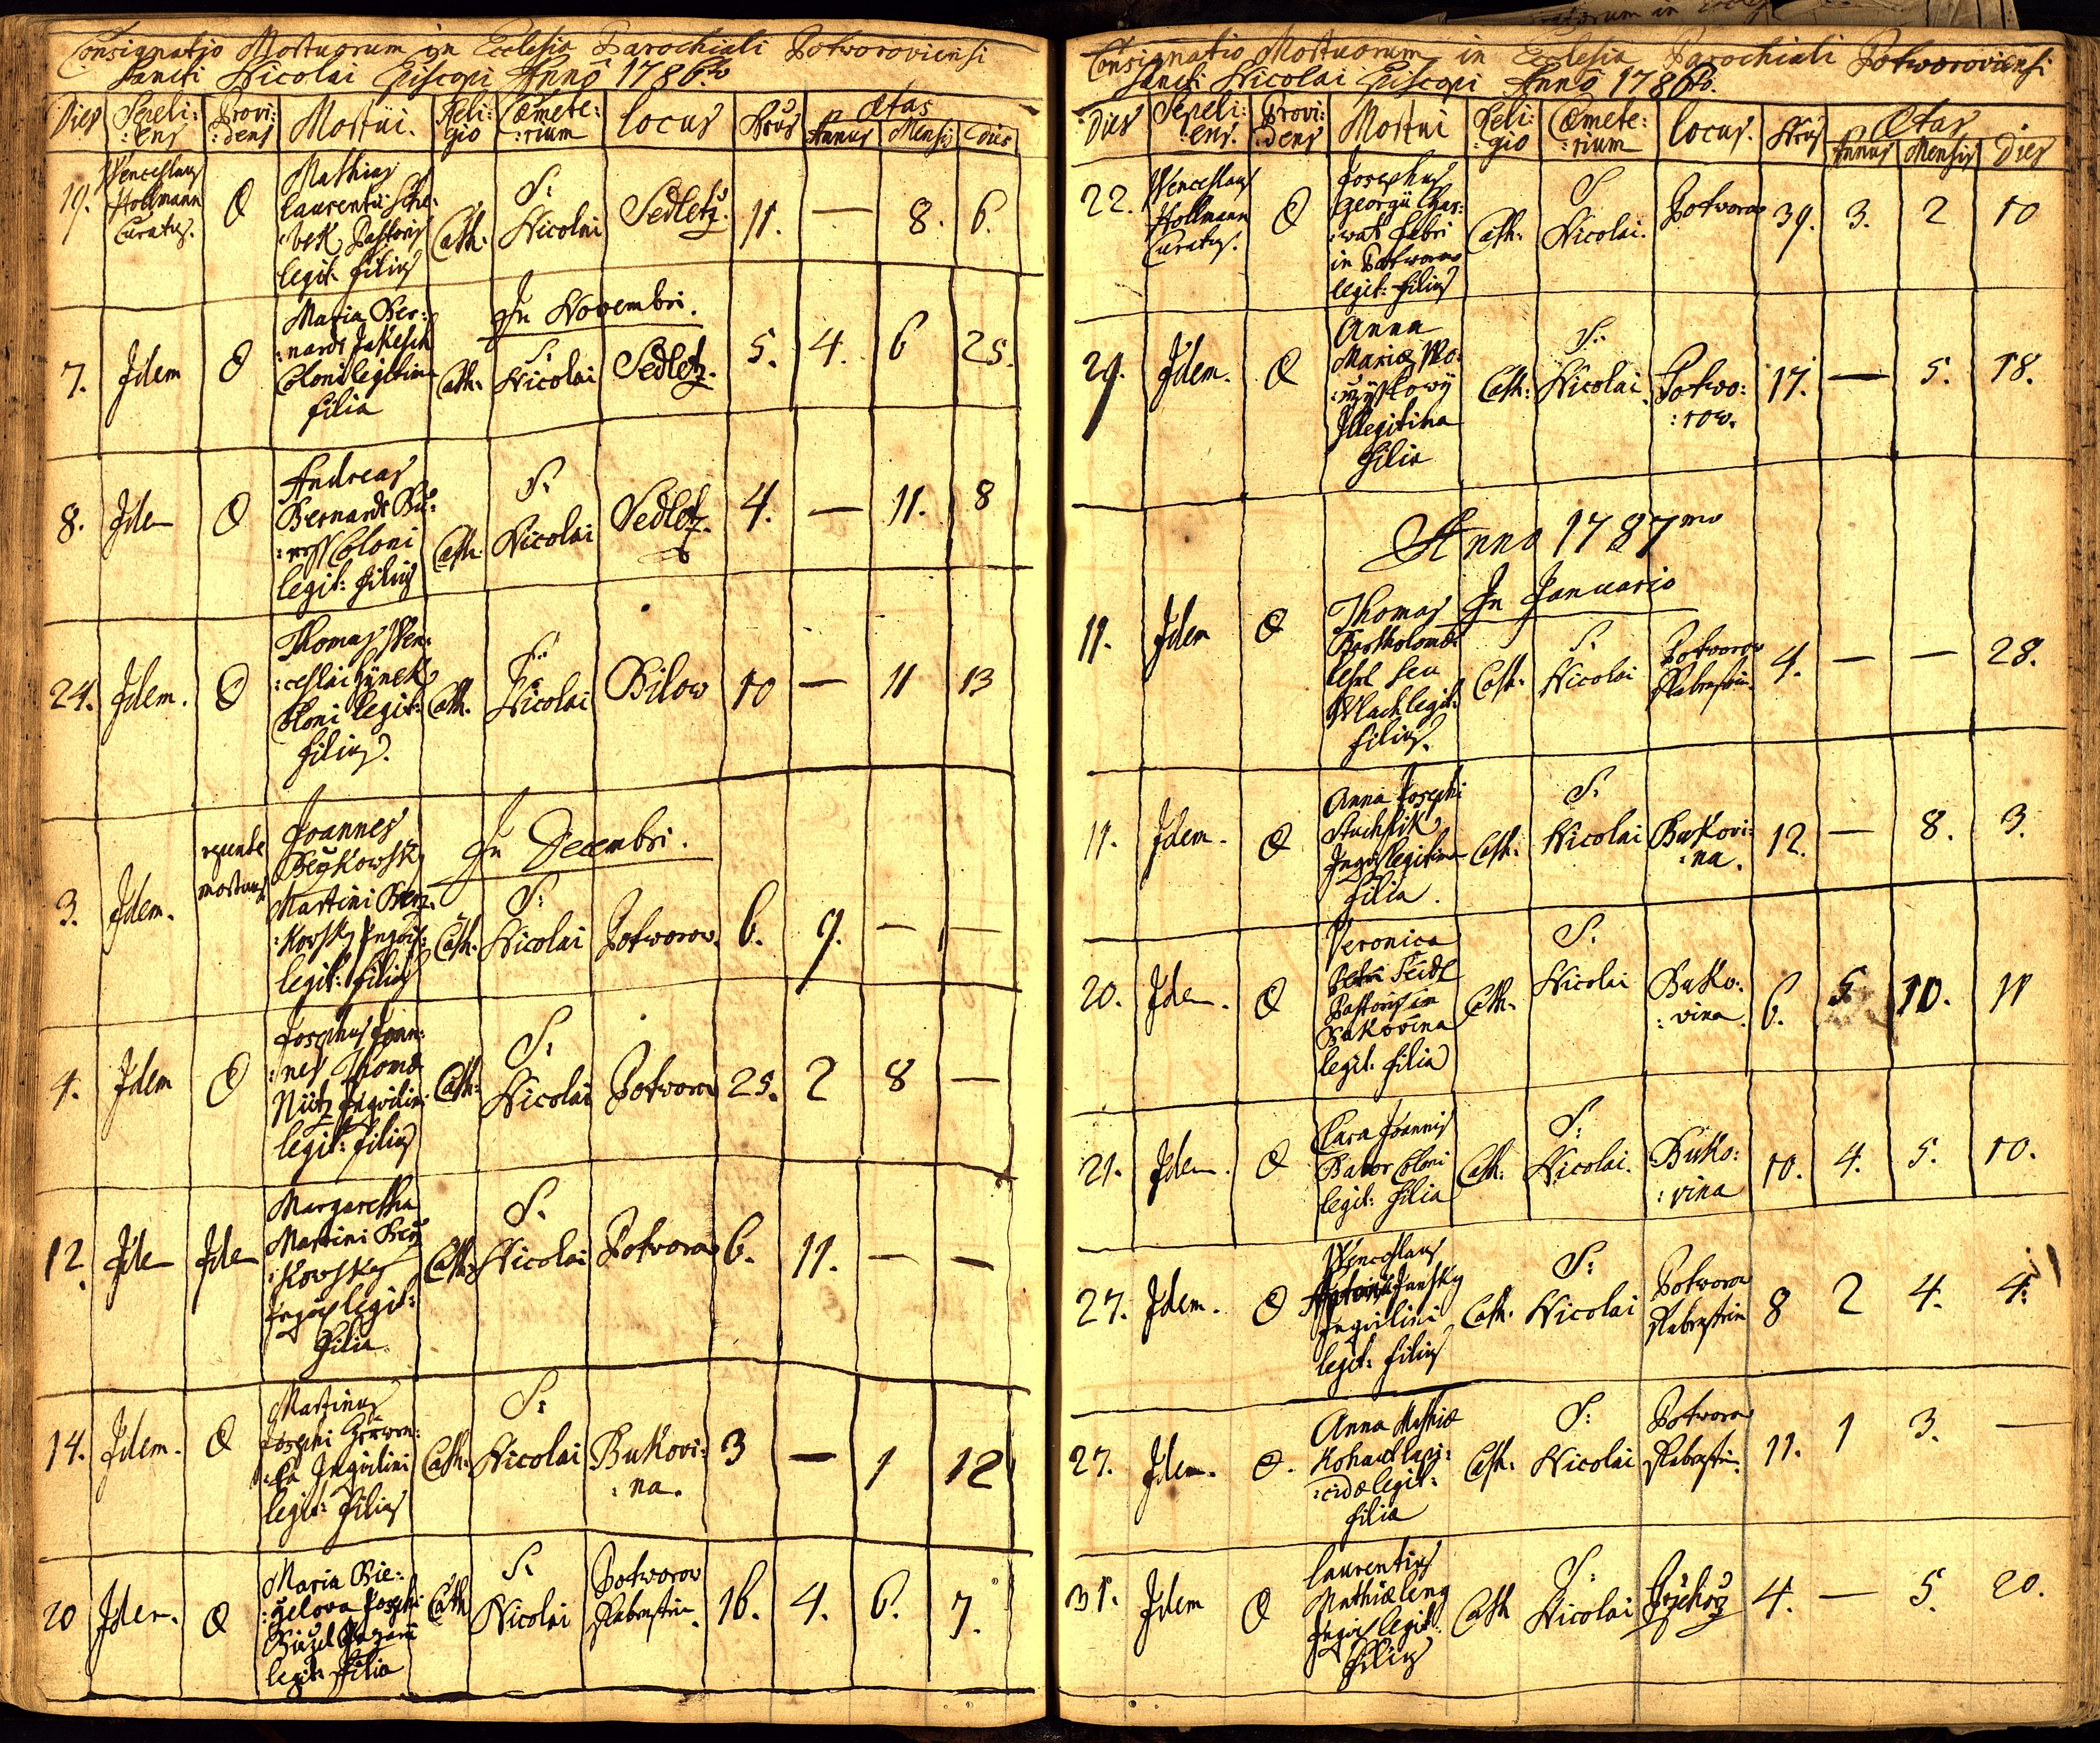 Consignatio Mortuorum in Ecclesia Parochiali Potworoviensi
Sancti Nicolai Episcopi Anno 1786to
Dies Sepeli: Provi: Mortui. Reli: Cœmete: Locus Nrus Ætas
:ens :dens gio :rium Annus Mensis Dies
19. Wenceslaus Hollmann Curatus. O
Mathias
Laurentii
Pastoris
legit: filius
Cath: S: Nicolai Sedletz. 11. — 8. 6.
In Novembri.
7. Idem O
Maria Ber:
:nardi Jakesch
Coloni legitima
filia
Cath: S: Nicolai Sedletz. 5. 4. 6 25.
8. Idem O
Andreas
Bernardi
Coloni
legit: filius
Cath: S: Nicolai Sedletz. 4. — 11. 8
24. Idem. O
Thomas Wen:
:ceslai Hynek
Coloni legit:
filius.
Cath. S: Nicolai Bilow 10 — 11 13
In Decembri.
3. Idem. repente mortuus
Joannes
Martini
legit: filius
Cath: S: Nicolai Potworow. 6. 9. — —
4. Idem O
Josephus Joan:
:nes Thomæ
Nütz Inquilini
legit: filius
Cath: S: Nicolai Potworow 25. 2 8 —
12. Idem Idem
Margaretha
Martini
legit:
Filia.
Cath: S. Nicolai Potworow 6. 11. — —
14. Idem. O
Martinus
Josephi
Inquilini
legit: Filius
Cath: S: Nicolai Bukovi: :na. 3 — 1 12
20 Idem. O
Maria Bie:
:gelova Josephi
legit: filia
Cath S: Nicolai Potworow Rabenstein. 16. 4. 6. 7.
Consignatio Mortuorum in Ecclesia Parochiali Potworoviensi
Sancti Nicolai Episcopi Anno 1786to.
Dies Sepeli: Provi: Mortui Reli: Cœmete: Locus. Nrus Ætas
:ens. :dens :gio :rium Annus Mensis Dies
22. Wenceslaus Hollmann Curatus. O
Josephus
Georgii Char:
:wat fabri
in Potworow
legit: filius
Cath: S Nicolai. Potworow 39. 3. 2 10
29. Idem. O
Anna
Mariæ
Illegitima
filia
Cath: S: Nicolai Potwo: :row. 17. — 5. 18.
Anno 1787mo
In Januario
11. Idem O
Thomas
Bartholomæi
seu
Wlach legit:
filius.
Cath: S. Nicolai Potworow Rabenstein. 4. — — 28.
11. Idem. O
Anna Josephi
legitima
filia.
Cath: S: Nicolai Bukovi: :na. 12. — 8. 3.
20. Idem. O
Veronica
Petri Seidl
Pastoris in
Bukovina
legit: filia
Cath: S: Nicolai Buko: :vina. 6. 5. 10. 11
21. Idem. O
Clara Joannis
Coloni
legit: filia
Cath: S: Nicolai. Buko: :vina 10. 4. 5. 10.
27. Idem. O
Wenceslaus
Antonii Jansky
Inquilini
legit: filius
Cath: S: Nicolai Potworow Rabenstein 8 2 4. 4.
27. Idem. O.
Anna Mathiæ
Kohaut lapi:
:cidæ legit:
filia
Cath: S: Nicolai Potworow Rabenstein. 11. 1 3. —
31. Idem O
Laurentius
Mathiæ
legit:
filius
Cath S: Nicolai 4. — 5. 20.